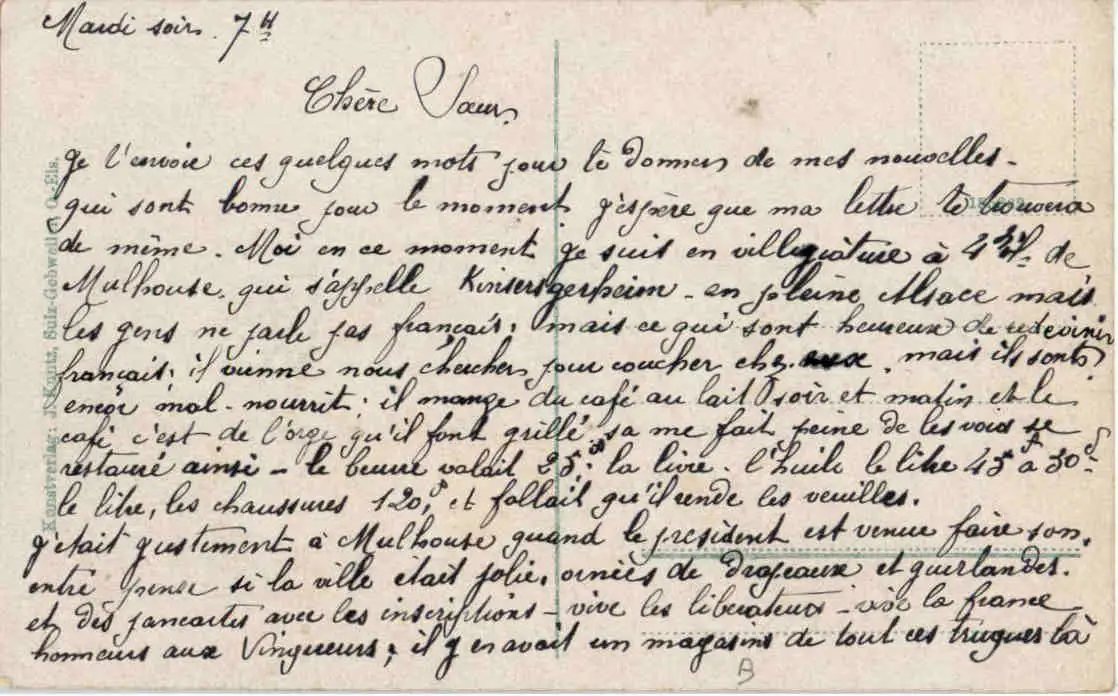 Mardi soir. 7 H
Chère Sœur,
Je t'envoie ces quelques mots pour te donner de mes nouvelles.
qui sont bonne pour le moment. j'espère que ma lettre te trouvera
de même. Moi en ce moment je suis en villegiature à 4 de
Mulhouse. qui s'appelle Kinsersgerheim - en pleine Alsace mais
les gens ne parle pas français; mais ce qui sont heureux de redevinir
français; il vienne nous chercher pour coucher chez eux. mais ils sonts
encor mal-nourrit; il mange du café au lait soir et matin et le
café c'est de l'orge qu'il font grillé. sa me fait peine de les voir se
restauré ainsi - le beurre valait 25 f la livre. l'huile le litre 45 f à 50 f
le litre, les chaussures 120 f et fallait qu'il rende les veuilles.
j'etait justement à Mulhouse quand le president est venue faire son.
entré pense si la ville était jolie, orniés de drapeaux et guerlandes.
et dès pancartes avec les inscriptions - vive les liberateurs - vive la france
honneurs aux Vinqueurs; il y en avait un magasins de tout ces truques là
Kunstverlag: J. Kuntz, Sulz-Gebweiler O.-Els.
B